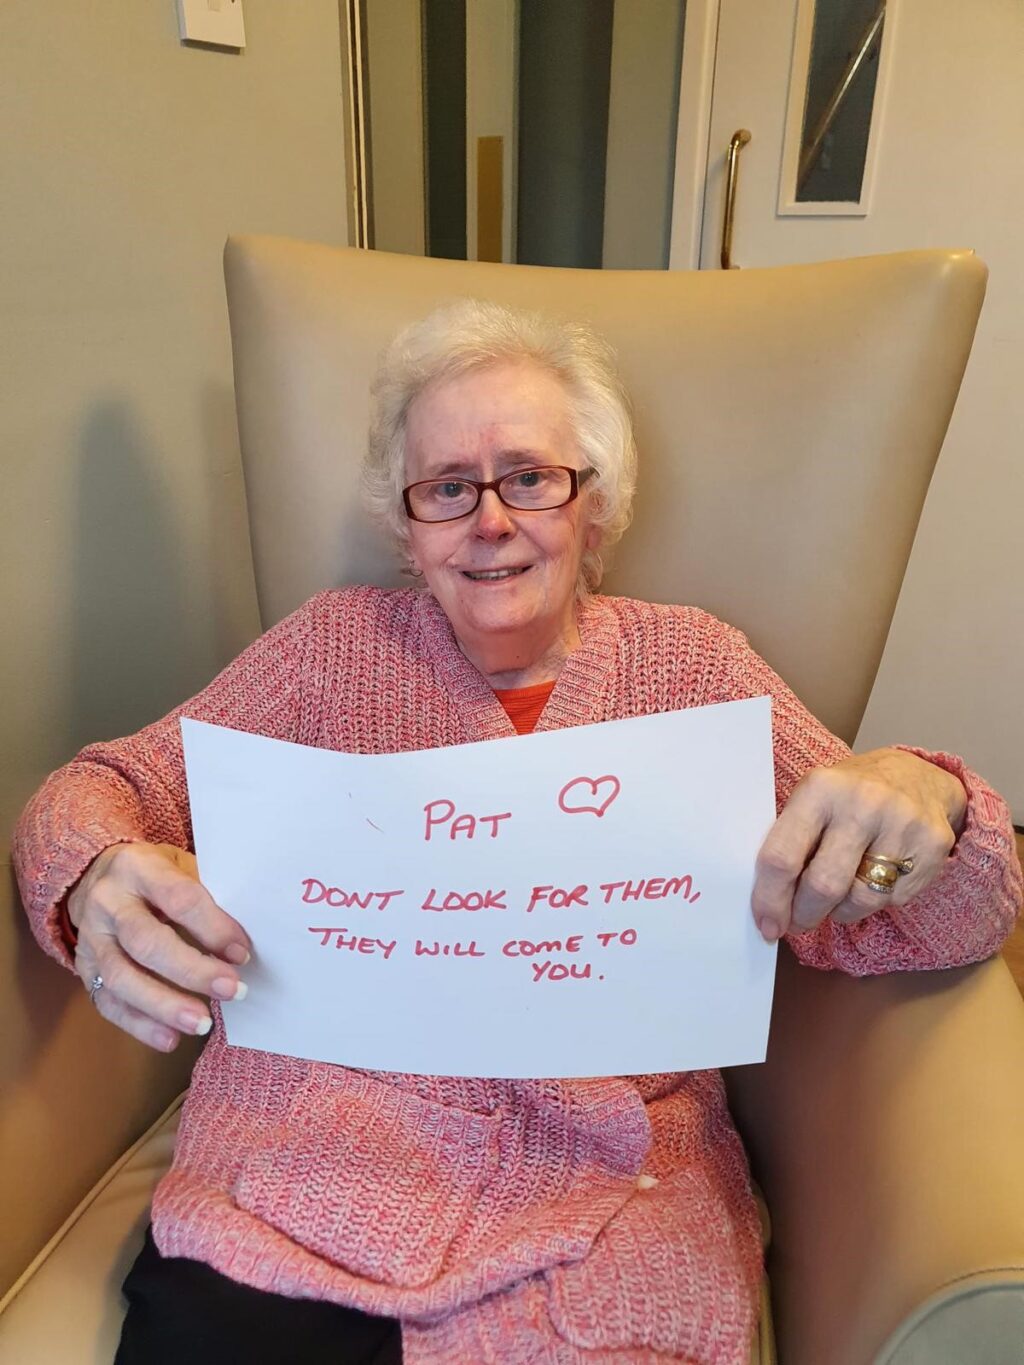 PAT ♡
DONT LOOK FOR THEM,
THEY WILL COME TO
YOU.